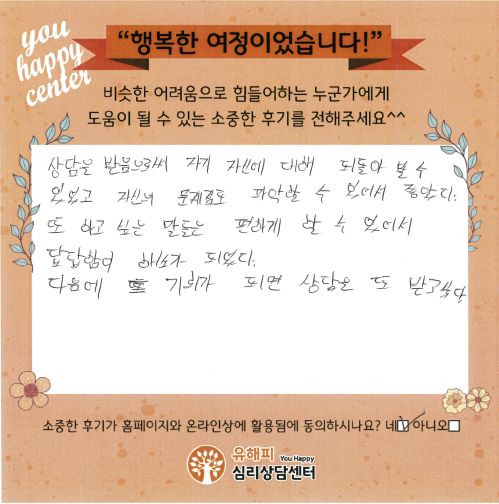 you
happy
center
“행복한 여정이었습니다!”
비슷한 어려움으로 힘들어하는 누군가에게
도움이 될 수 있는 소중한 후기를 전해주세요^^
상담을 받음으로써 자기 자신에 대해 되돌아 볼 수
있었고 자신의 문제점도 파악할 수 있어서 좋았다.
또 하고 싶은 말들을 편하게 할 수 있어서
답답함이 해소가 되었다.
다음에 기회가 되면 상담을 또 받고싶다
소중한 후기가 홈페이지와 온라인상에 활용됨에 동의하시나요? 네☑ 아니오☐
유해피 You Happy
심리상담센터